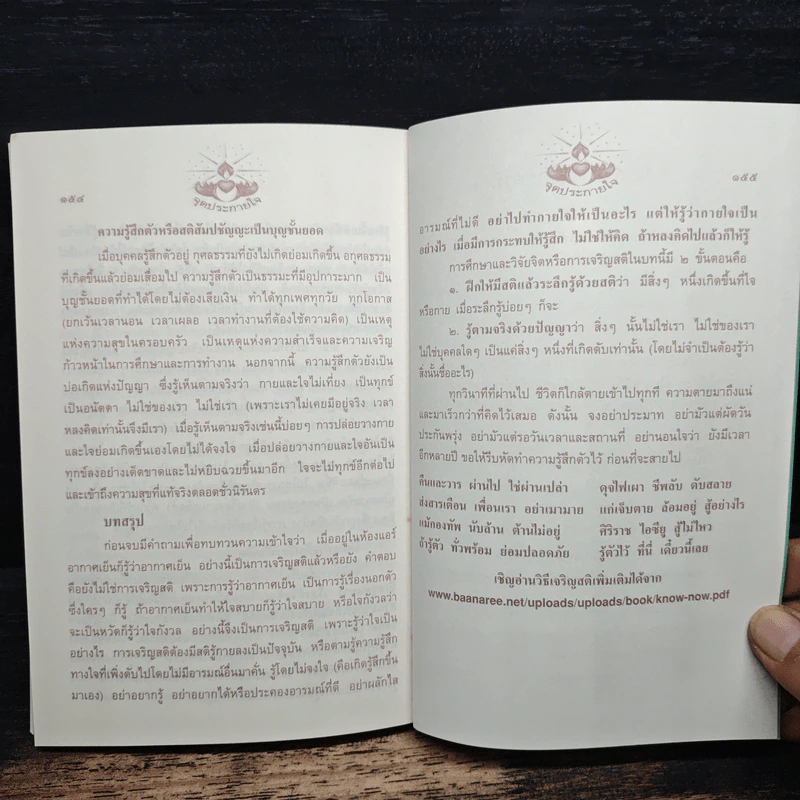 จุดประกายใจ
๑๕๔
ความรู้สึกตัวหรือสติสัมปชัญญะเป็นบุญชั้นยอด
เมื่อบุคคลรู้สึกตัวอยู่ กุศลธรรมที่ยังไม่เกิดย่อมเกิดขึ้น อกุศลธรรม
ที่เกิดขึ้นแล้วย่อมเสื่อมไป ความรู้สึกตัวเป็นธรรมะที่มีอุปการะมาก เป็น
บุญชั้นยอดที่ทำได้โดยไม่ต้องเสียเงิน ทำได้ทุกเพศทุกวัย ทุกโอกาส
(ยกเว้นเวลานอน เวลาเผลอ เวลาทำงานที่ต้องใช้ความคิด) เป็นเหตุ
แห่งความสุขในครอบครัว เป็นเหตุแห่งความสำเร็จและความเจริญ
ก้าวหน้าในการศึกษาและการทำงาน นอกจากนี้ ความรู้สึกตัวยังเป็น
บ่อเกิดแห่งปัญญา ซึ่งรู้เห็นตามจริงว่า กายและใจไม่เที่ยง เป็นทุกข์
เป็นอนัตตา ไม่ใช่ของเรา ไม่ใช่เรา (เพราะเราไม่เคยมีอยู่จริง เวลา
หลงคิดเท่านั้นจึงมีเรา) เมื่อรู้เห็นตามจริงเช่นนี้บ่อยๆ การปล่อยวางกาย
และใจย่อมเกิดขึ้นเองโดยไม่ได้จงใจ เมื่อปล่อยวางกายและใจอันเป็น
ทุกข์ลงอย่างเด็ดขาดและไม่หยิบฉวยขึ้นมาอีก ใจจะไม่ทุกข์อีกต่อไป
และเข้าถึงความสุขที่แท้จริงตลอดชั่วนิรันดร
บทสรุป
ก่อนจบมีคำถามเพื่อทบทวนความเข้าใจว่า เมื่ออยู่ในห้องแอร์
อากาศเย็นก็รู้ว่าอากาศเย็น อย่างนี้เป็นการเจริญสติแล้วหรือยัง คำตอบ
คือยังไม่ใช่การเจริญสติ เพราะการรู้ว่าอากาศเย็น เป็นการรู้เรื่องนอกตัว
ซึ่งใครๆ ก็รู้ ถ้าอากาศเย็นทำให้ใจสบายก็รู้ว่าใจสบาย หรือใจกังวลว่า
จะเป็นหวัดก็รู้ว่าใจกังวล อย่างนี้จึงเป็นการเจริญสติ เพราะรู้ว่าใจเป็น
อย่างไร การเจริญสติต้องมีสติรู้กายลงเป็นปัจจุบัน หรือตามรู้ความรู้สึก
ทางใจที่เพิ่งดับไปโดยไม่มีอารมณ์อื่นมาคั่น รู้โดยไม่จงใจ (คือเกิดรู้สึกขึ้น
มาเอง) อย่าอยากรู้ อย่าอยากได้หรือประคองอารมณ์ที่ดี อย่าผลักไส
จุดประกายใจ
๑๕๕
อารมณ์ที่ไม่ดี อย่าไปทำกายใจให้เป็นอะไร แต่ให้รู้ว่ากายใจเป็น
อย่างไร เมื่อมีการกระทบให้รู้สึก ไม่ใช่ให้คิด ถ้าหลงคิดไปแล้วก็ให้รู้
การศึกษาและวิจัยจิตหรือการเจริญสติในบทนี้มี ๒ ขั้นตอนคือ
๑. ฝึกให้มีสติแล้วระลึกรู้ด้วยสติว่า มีสิ่งๆ หนึ่งเกิดขึ้นที่ใจ
หรือกาย เมื่อระลึกรู้บ่อยๆ ก็จะ
๒. รู้ตามจริงด้วยปัญญาว่า สิ่งๆ นั้นไม่ใช่เรา ไม่ใช่ของเรา
ไม่ใช่บุคคลใดๆ เป็นแค่สิ่งๆ หนึ่งที่เกิดดับเท่านั้น (โดยไม่จำเป็นต้องรู้ว่า
สิ่งนั้นชื่ออะไร)
ทุกวินาทีที่ผ่านไป ชีวิตก็ใกล้ตายเข้าไปทุกที ความตายมาถึงแน่
และมาเร็วกว่าที่คิดไว้เสมอ ดังนั้น จงอย่าประมาท อย่ามัวแต่ผัดวัน
ประกันพรุ่ง อย่ามัวแต่รอวันเวลาและสถานที่ อย่านอนใจว่า ยังมีเวลา
อีกหลายปี ขอให้รีบหัดทำความรู้สึกตัวไว้ ก่อนที่จะสายไป
คืนและวาร ผ่านไป ใช่ผ่านเปล่า ดุจไฟเผา ชีพลับ ดับสลาย
ส่งสารเตือน เพื่อนเรา อย่าเมามาย แก่เจ็บตาย ล้อมอยู่ สู้อย่างไร
แม้กองทัพ นับล้าน ต้านไม่อยู่ ศิริราช ไอซียู สู้ไม่ไหว
ถ้ารู้ตัว ทั่วพร้อม ย่อมปลอดภัย รู้ตัวไว้ ที่นี่ เดี๋ยวนี้เลย
เชิญอ่านวิธีเจริญสติเพิ่มเติมได้จาก
www.baanaree.net/uploads/uploads/book/know-now.pdf